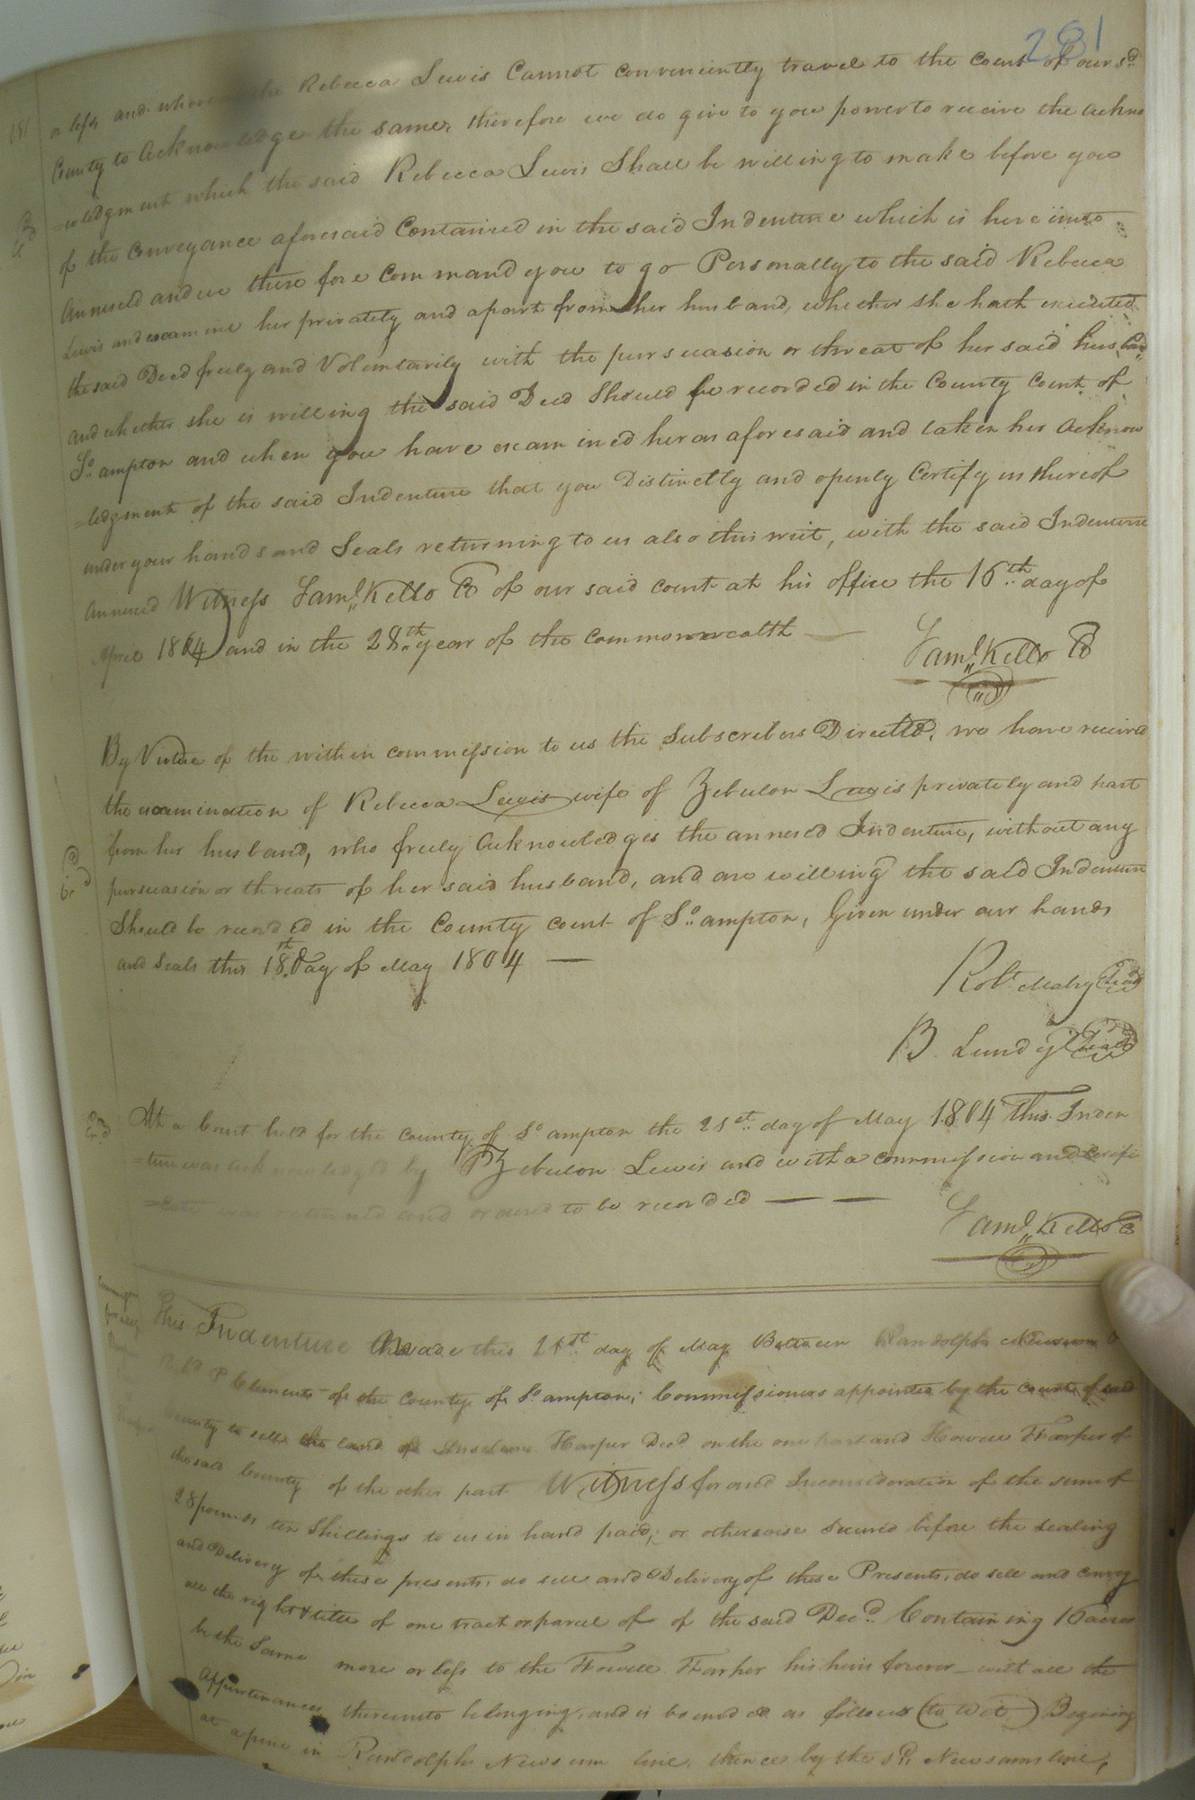 281
or less and whereas the Rebecca Lewis Cannot conveniently travel to the Court of our sd
County to Acknowledge the same, therefore we do give to you power to receive the Ackno
=wledgment which the said Rebecca Lewis Shall be willing to make before you
of the conveyance aforesaid Contained in the said Indenture which is here unto
Annexed and we there fore command you to go Personally to the said Rebecca
Lewis and examine her privately and apart from her husband, whether she hath executed
the said Deed freely and Voluntarily with the pursuasion or threat of her said husband
and whether she is willing the said Deed Should be recorded in the County Court of
So. ampton and when you have examined her as aforesaid and taken her Acknow
=ledgment of the said Indenture that you Distinctly and openly Certify us thereof
under your hands and Seals returning to us also this writ, with the said Indenture
annexed Witness Saml. Kello C of our said court at his office the 16th day of
April 1804 and in the 28th year of the commonwealth
Saml. Kello C
By Virtue of the within commission to us the Subscribers Directed, we have received
the examination of Rebecca Lewis wife of Zebulon Lewis privately and part
from her husband, who freely Acknowledges the annexed Indenture, without any
pursuasion or threats of her said husband, and are willing the said Indenture
Should be recorded in the County court of So. ampton, Given under our hands
and Seals this 18th Day of May 1804
Robt Mabry Seal
B Lundy Seal
At a Court held for the County of So ampton the 21st day of May 1804 This Inden
=ture was acknowledged by Zebulon Lewis and with a commission and certifi
=cate was returned and ordered to be recorded
Saml. Kello C
This Indenture Made this 21st day of May Between Randolph Newsum
P Clements of the County of So ampton; Commissioners appointed by the court of said
County to sell the land of Anselam Harper Decd on the one part and Howell Harper of
the said County of the other part Witness for and Inconsideration of the sum of
28 pounds ten Shillings to us in hand paid, or otherwise Secured before the sealing
and Delivery of these presents, do sell and Delivery of these Presents, do sell and convey
all the right & title of one tract or parcel of of the said Decd. Containing 16 acres
be the Same more or less to the Howell Harper his heirs forever with all the
Appurtenances thereunto belonging, and is bounded as follows (to wit) Begining
at a pine in Randolph Newsum line, thence by the sd. Newsums line,